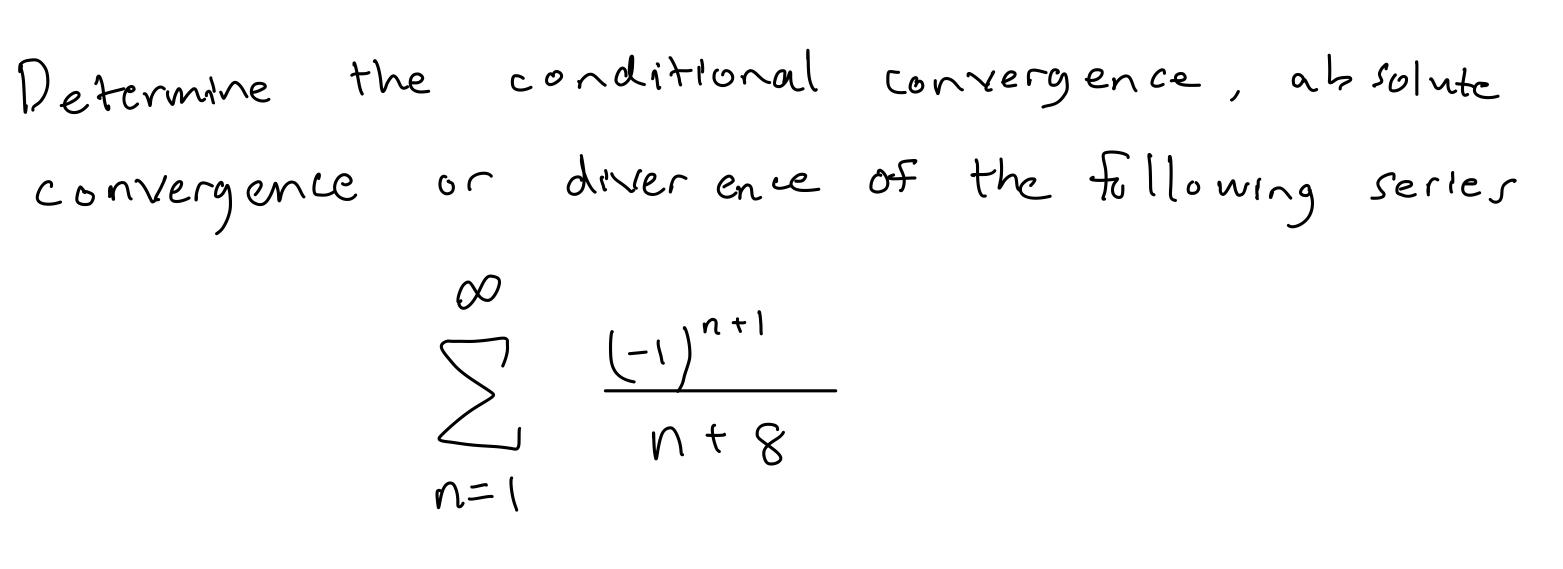 Determine the conditional convergence, absolute
convergence or diver ence of the following series
∞
∑ (-1)^(n+1) / (n + 8)
n=1